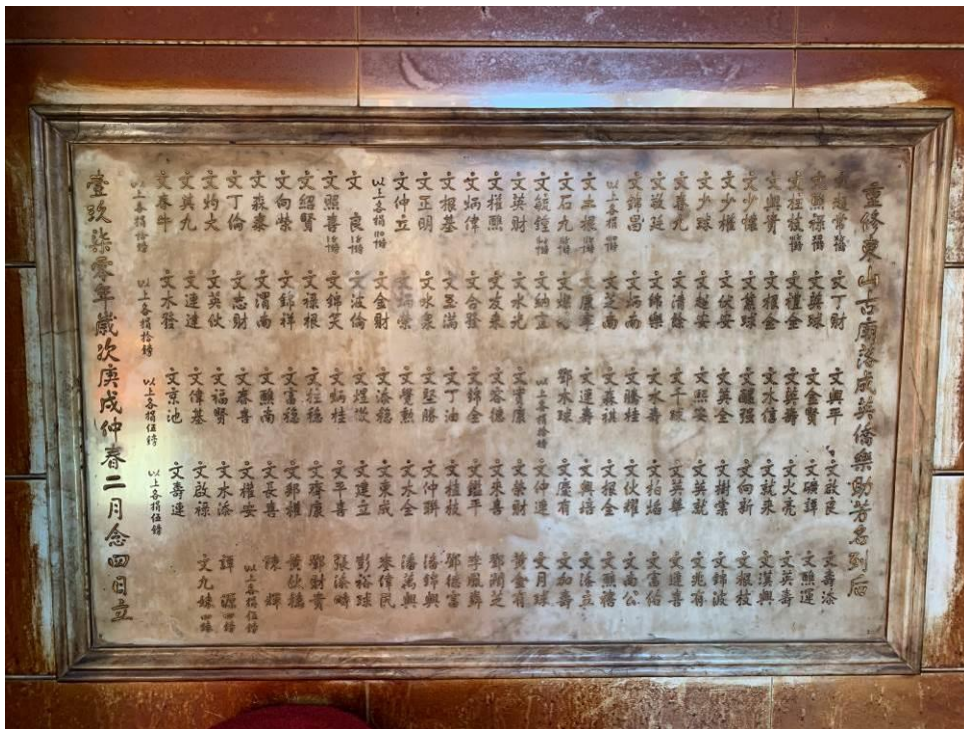 重修東山古廟落成英僑樂助芳名列后
文柱枝
文興貴
文少權
文少球
文春九
文敬廷
文錦昌
以上各捐
文木根
文石九
文毓鏗
文英財
文耀熙
文炳偉
文根基
文亞明
文仲立
以上各捐
文良
文熙喜
文紹賢
文向榮
文森泰
文丁倫
文灼大
文英九
文春牛
以上各捐拾鎊
文丁財
文英球
文禮金
文根全
文葉球
文伏安
文趍安
文浩餘
文錦樂
文炳南
文芝南
文康寧
文納宜
文水光
文友來
文合發
文玉滿
文水泉
文炳榮
文金財
文波倫
文錦笑
文祿根
文錦祥
文渭南
文志財
文英伙
文連達
文水發
以上各捐拾鎊
文興平
文金賢
文英壽
文水信
文醒强
文英全
文熙安
文千球
文水壽
文騰桂
文森祺
文運壽
鄧水球
以上各捐拾鎊
文貴康
文容德
文錦全
文丁油
文堅勝
文覺勲
文煜微
文添穏
文炳桂
文社穏
文富穏
文熙南
文春喜
文福賢
文偉基
文京池
以上各捐伍鎊
文啟良
文礦譚
文火亮
文就來
文向新
文樹棠
文英就
文英華
文柏焰
文伙耀
文根全
文興培
文慶有
文仲運
文榮財
文來喜
文鑑平
文植枝
文仲聯
文水全
文東成
文建立
文平喜
文齊康
文郅權
文長喜
文權安
文水添
文啟祿
文壽運
以上各捐伍鎊
文壽添
文熙運
文英壽
文漢興
文根枝
文錦波
文兆有
文連喜
文富佑
文南公
文熙禧
文添立
文加壽
文月球
黄金有
鄧潤芝
李鳳麟
鄧德富
麥偉民
潘錦興
潘萬興
彭裕球
張添疇
鄧財貴
黄欽穏
陳輝
以上各捐伍鎊
譚源 四鎊
文九妹 四鎊
壹玖柒零年歲次庚戌仲春二月念四日立